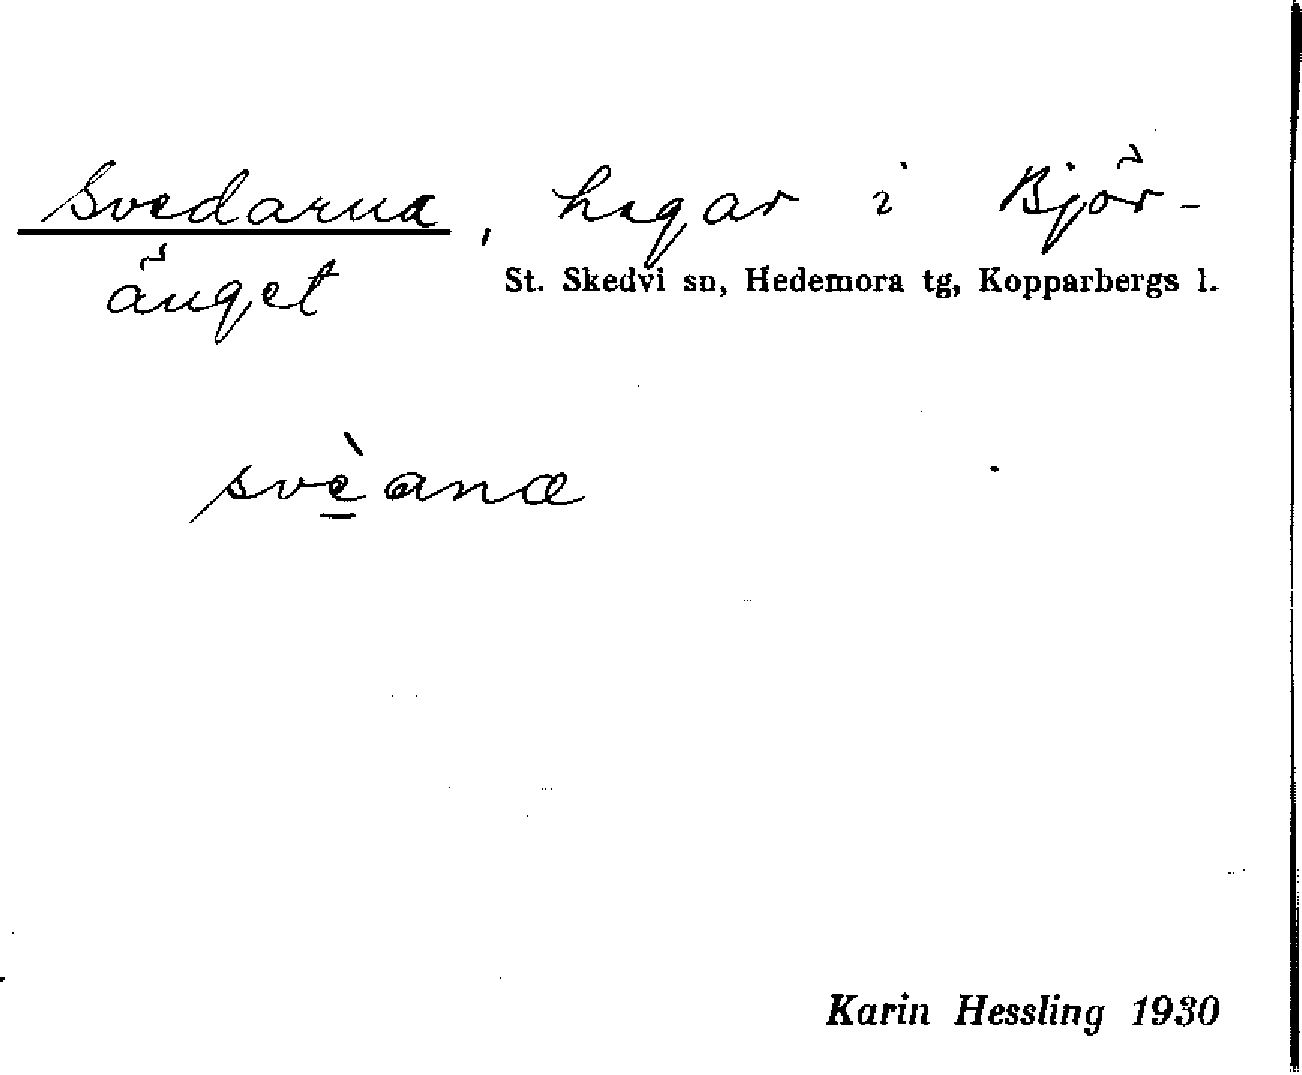 Svedarna, hagar i Björ-
änget
St. Skedvi sn, Hedemora tg, Kopparbergs l.
svèana
Karin Hessling 1930